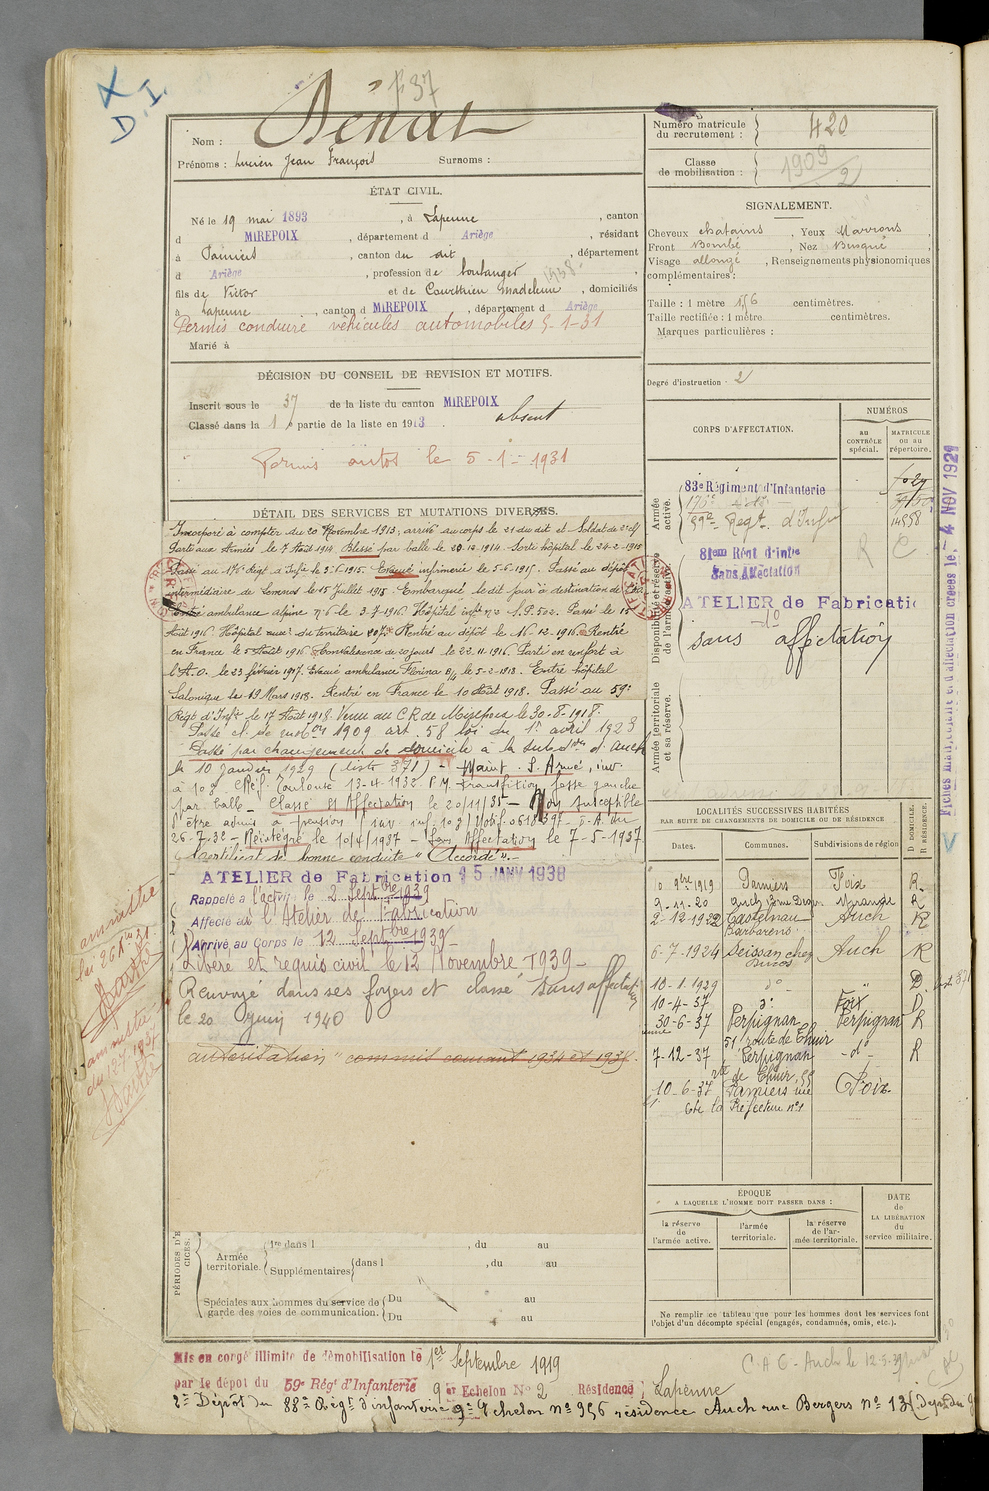 f 37
X D. I.
Nom : Dénat
Prénoms : Lucien Jean François Surnoms :
Numéro matricule du recrutement : 420
Classe de mobilisation : 1909 / 2
ÉTAT CIVIL.
Né le 19 mai 1893, à Lapenne, canton
d MIREPOIX, département d Ariège, résidant
à Pamiers, canton du dit, département
d Ariège, profession de boulanger
fils de Victor et de Courthieu Madeleine, domiciliés
à Lapenne, canton d MIREPOIX, département d Ariège
Permis conduire véhicules automobiles 5-1-31
Marié à
SIGNALEMENT.
Cheveux chatains, Yeux Marrons,
Front Bombé, Nez Busqué,
Visage allongé, Renseignements physionomiques
complémentaires :
Taille : 1 mètre 56 centimètres.
Taille rectifiée : 1 mètre centimètres.
Marques particulières :
Degré d'instruction : 2
DÉCISION DU CONSEIL DE REVISION ET MOTIFS.
Inscrit sous le 37 de la liste du canton MIREPOIX
Classé dans la 1e partie de la liste en 1913. absent
Permis autos le 5-1-1931
DÉTAIL DES SERVICES ET MUTATIONS DIVERSES.
Incorporé à compter du 20 Novembre 1913, arrivé au corps le 21 du dit et Soldat de 2e cl
Parti aux Armées le 7 Août 1914. Blessé par balle le 20-12-1914. Sorti hôpital le 24-2-1915
Passé au 176e Régt d'Infie le 3-6-1915. Evacué infirmerie le 5-6-1915. Passé au dépôt
intermédiaire de Lemnos le 15 Juillet 1915. Embarqué le dit jour à destination de
Entré ambulance alpine n° 6 le 3-7-1916. Hôpital n° 2 S.P. 502. Passé le 15
Août 1916 Hôpital du territoire Rentré au dépôt le 16-12-1916. Rentré
en France le 5 Août 1916 Convalescence de 20 jours le 22-11-1916 Parti en renfort à
l'A.O. le 23 février 1917. Evacué ambulance Florina le 5-2-1918. Entré hôpital
Salonique le 19 Mars 1918. Rentré en France le 10 Août 1918. Passé au 59e
Régt d'Infie le 17 Août 1918. Venu au C.R. de Mirepoix le 30-8-1918.
Passé cl. de mobon 1909 art. 58 loi du 1er avril 1923
Passé par changement de domicile à la subdon d'Auch
le 10 Janvier 1929 (liste 371) - Maint. S. Armé, inv.
à 10 % CRéf. Toulouse 13-4-1932 P.M. transfixion fesse gauche
par balle - Classé St Affectation le 20/11/35 - Non susceptible
d'être admis à pension
26-7-32 - Réintégré le 10/4/1937 - Sans Affectation le 7-5-1937.
Certificat de bonne conduite "Accordé".
ATELIER de Fabrication 15 JANV 1938
Rappelé à l'activité le 2 Septbre 1939
Affecté à l'Atelier de Fabrication
Arrivé au Corps le 12 Septbre 1939
Libéré et requis civil le 12 Novembre 1939 -
Renvoyé dans ses foyers et classé sans affectation
le 20 juin 1940
autorisation
amnistié loi 26 Xbre 31.
amnistié du 12-7-1937
CORPS D'AFFECTATION.
NUMÉROS
au CONTRÔLE spécial.
MATRICULE ou au répertoire.
Armée active.
83e Régiment d'Infanterie
176e
59e Régt d'Infie
14558
Disponibilité et réserve de l'armée active.
81em Régt d'infie
Sans Affectation
ATELIER de Fabricatio
sans affectation
R C
Armée territoriale et sa réserve.
Fiches matricule et d'affectation créées le : 4 NOV 1921
LOCALITÉS SUCCESSIVES HABITÉES
PAR SUITE DE CHANGEMENTS DE DOMICILE OU DE RÉSIDENCE
Dates. Communes. Subdivisions de région D. DOMICILE. R. RÉSIDENCE.
9bre 1919 Pamiers Foix R.
9-11-20 Auch Mirande R
2-12-1922 Castelnau Barbarens Auch R
6-7-1924 Seissan chez Auch R
10-1-1929 d° " D.
10-4-37 d° Foix D
30-6-37 Perpignan Perpignan R
51 route de Thuir
7-12-37 Perpignan -d°- R
rte de Thuir, 55
10-6-37 Pamiers rue Foix
Préfecture n° 1
ÉPOQUE
A LAQUELLE L'HOMME DOIT PASSER DANS :
la réserve de l'armée active.
l'armée territoriale.
la réserve de l'armée territoriale.
DATE de LA LIBÉRATION du service militaire.
Ne remplir ce tableau que pour les hommes dont les services font
l'objet d'un décompte spécial (engagés, condamnés, omis, etc.).
PÉRIODES D'E CICES.
Armée territoriale.
1re dans l , du au
Supplémentaires dans l , du au
Spéciales aux hommes du service de garde des voies de communication.
Du au
Du au
Mis en congé illimité de démobilisation le 1er Septembre 1919
par le dépôt du 59e Régt d'Infanterie 9 er Echelon N° 2 Résidence Lapenne
C.A.C. - Auch le 12-5-39
2e Dépôt du 88e Régt d'infanterie 9e Echelon n° 956 résidence Auch rue Bergers n° 13